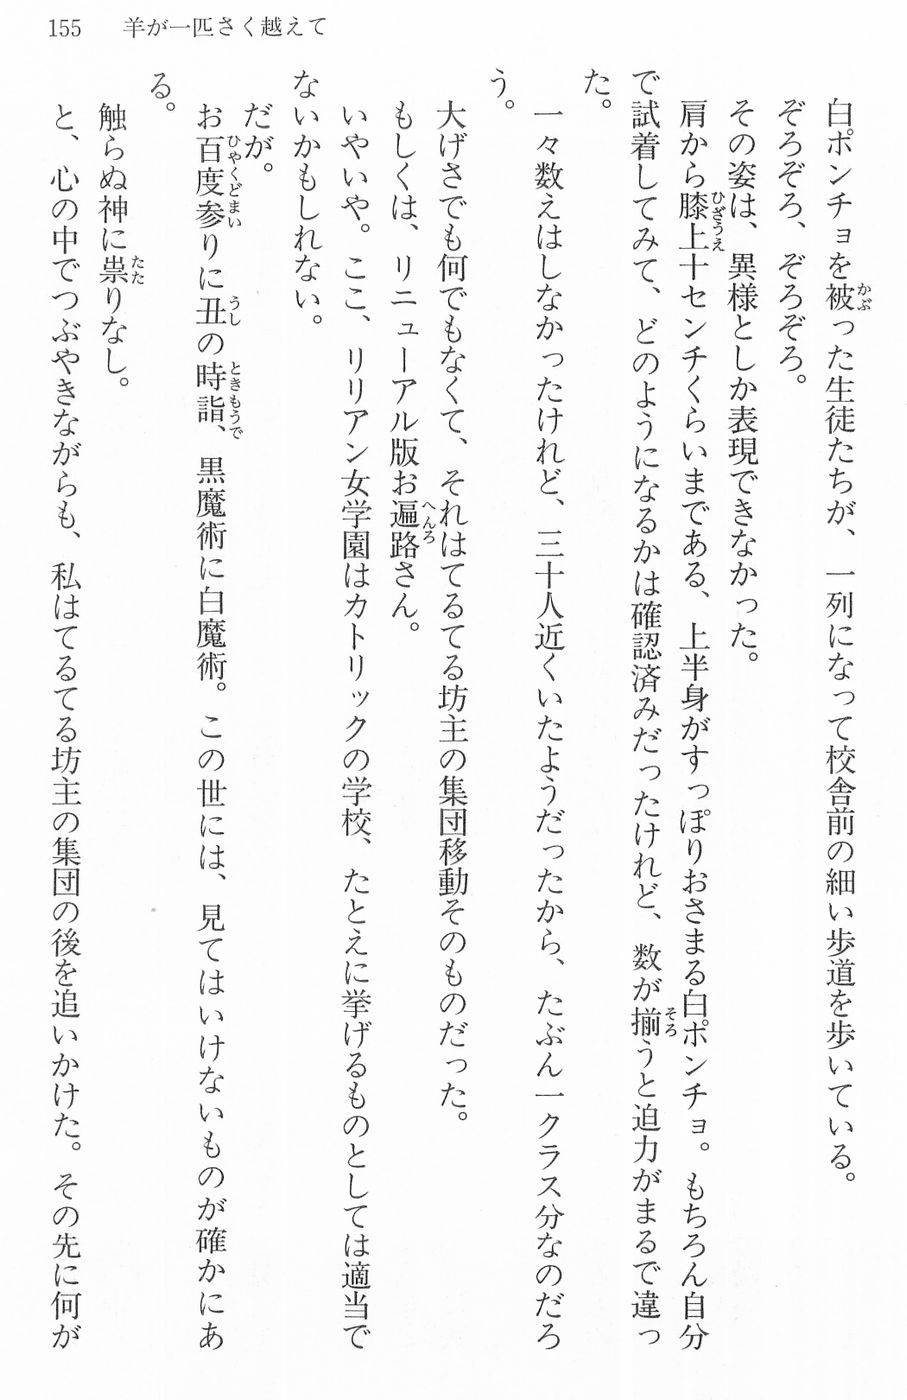 155　羊が一匹さく越えて
白ポンチョを被った生徒たちが、一列になって校舎前の細い歩道を歩いている。
ぞろぞろ、ぞろぞろ。
その姿は、異様としか表現できなかった。
肩から膝上十センチくらいまである、上半身がすっぽりおさまる白ポンチョ。もちろん自分
で試着してみて、どのようになるかは確認済みだったけれど、数が揃うと迫力がまるで違っ
た。
一々数えはしなかったけれど、三十人近くいたようだったから、たぶん一クラス分なのだろ
う。
大げさでも何でもなくて、それはてるてる坊主の集団移動そのものだった。
もしくは、リニューアル版お遍路さん。
いやいや。ここ、リリアン女学園はカトリックの学校、たとえに挙げるものとしては適当で
ないかもしれない。
だが。
お百度参りに丑の時詣、黒魔術に白魔術。この世には、見てはいけないものが確かにあ
る。
触らぬ神に祟りなし。
と、心の中でつぶやきながらも、私はてるてる坊主の集団の後を追いかけた。その先に何が